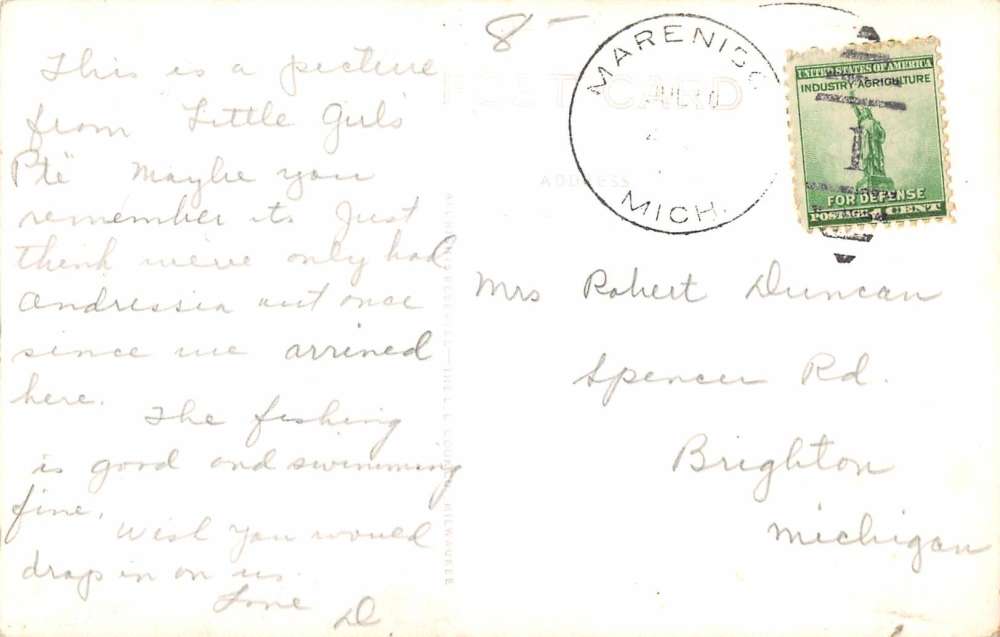 8-
This is a picture
from Little Girl's
Pte Maybe you
remember it. Just
think we've only had
out once
since we arrived
here.
The fishing
is good and swimming
fine.
Wish you would
drop in on us.
Love
D
POST CARD
ADDRESS
MARENISCO
MICH.
JUL
UNITED STATES OF AMERICA
INDUSTRY-AGRICULTURE
1
FOR DEFENSE
POSTAGE 1 CENT
Mrs Robert Duncan
Spencer Rd.
Brighton
Michigan
THE L. L. COOK CO., MILWAUKEE